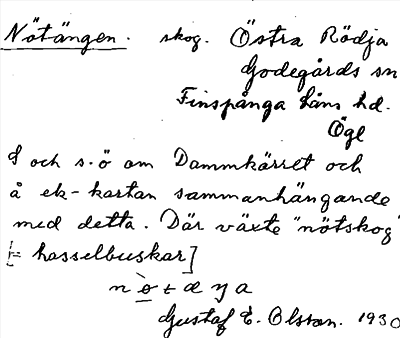 Nötängen. skog. Östra Rödja
Godegårds sn
Finspånga läns hd.
Ögl
S och s.ö om Dammkärret och
å ek-kartan sammanhängande
med detta. Där växte "nötskog"
[= hasselbuskar]
Gustaf E. Olsson. 1930